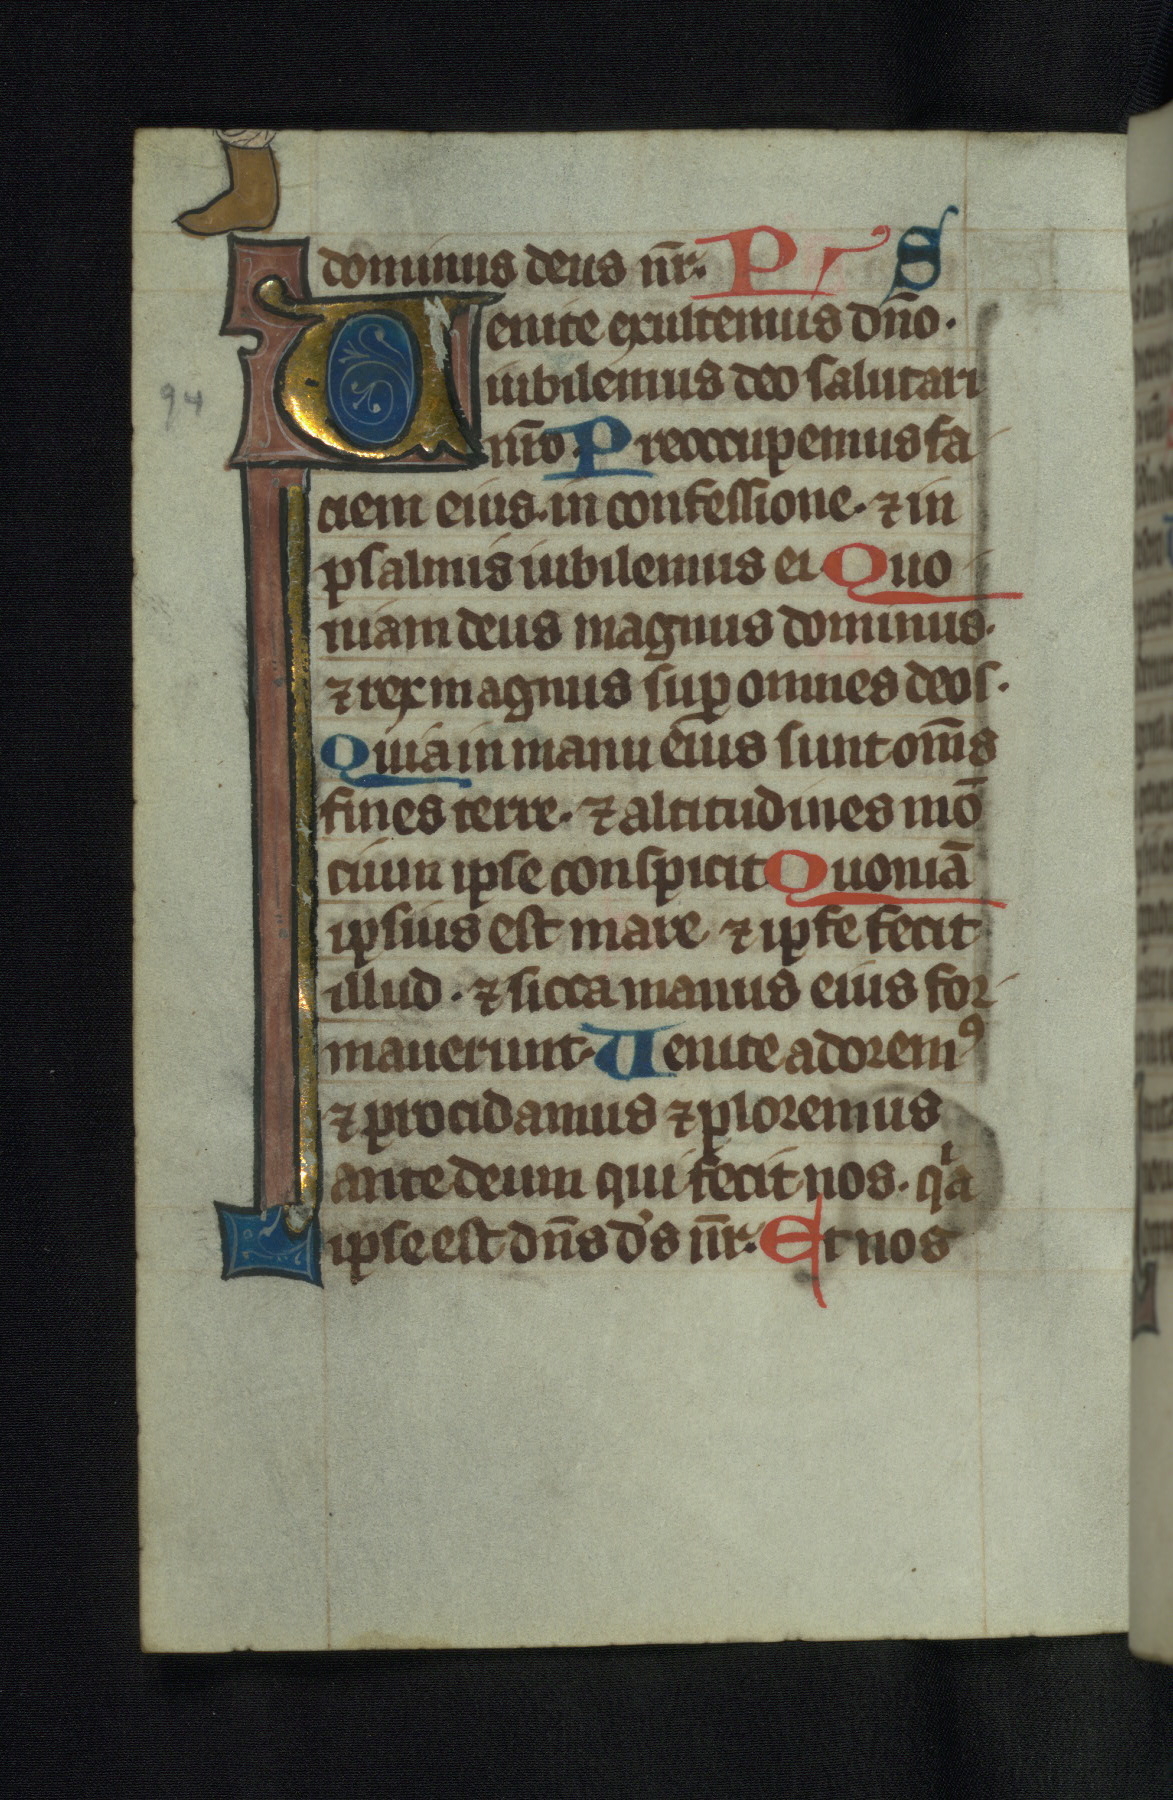 dominus deus nr̄. Pˢ S
Uenite exultemus dn̄o.
iubilemus deo salutari
nr̄o. Preoccupemus fa
ciem eius. in confessione. ⁊ in
psalmis iubilemus ei Quo
niam deus magnus dominus.
⁊ rex magnus suꝑ omnes deos.
Quia in manu eius sunt om̄s
fines terre. ⁊ altitudines mō
cium ipse conspicit Quoniā
ipsius est mare ⁊ ipse fecit
illud. ⁊ sicca manus eius for
mauerunt. Uenite adoremꝰ
⁊ procidamus ⁊ ploremus
ante deum qui fecit nos. qͥa
ipse est dn̄s d's nr̄. Et nos
94